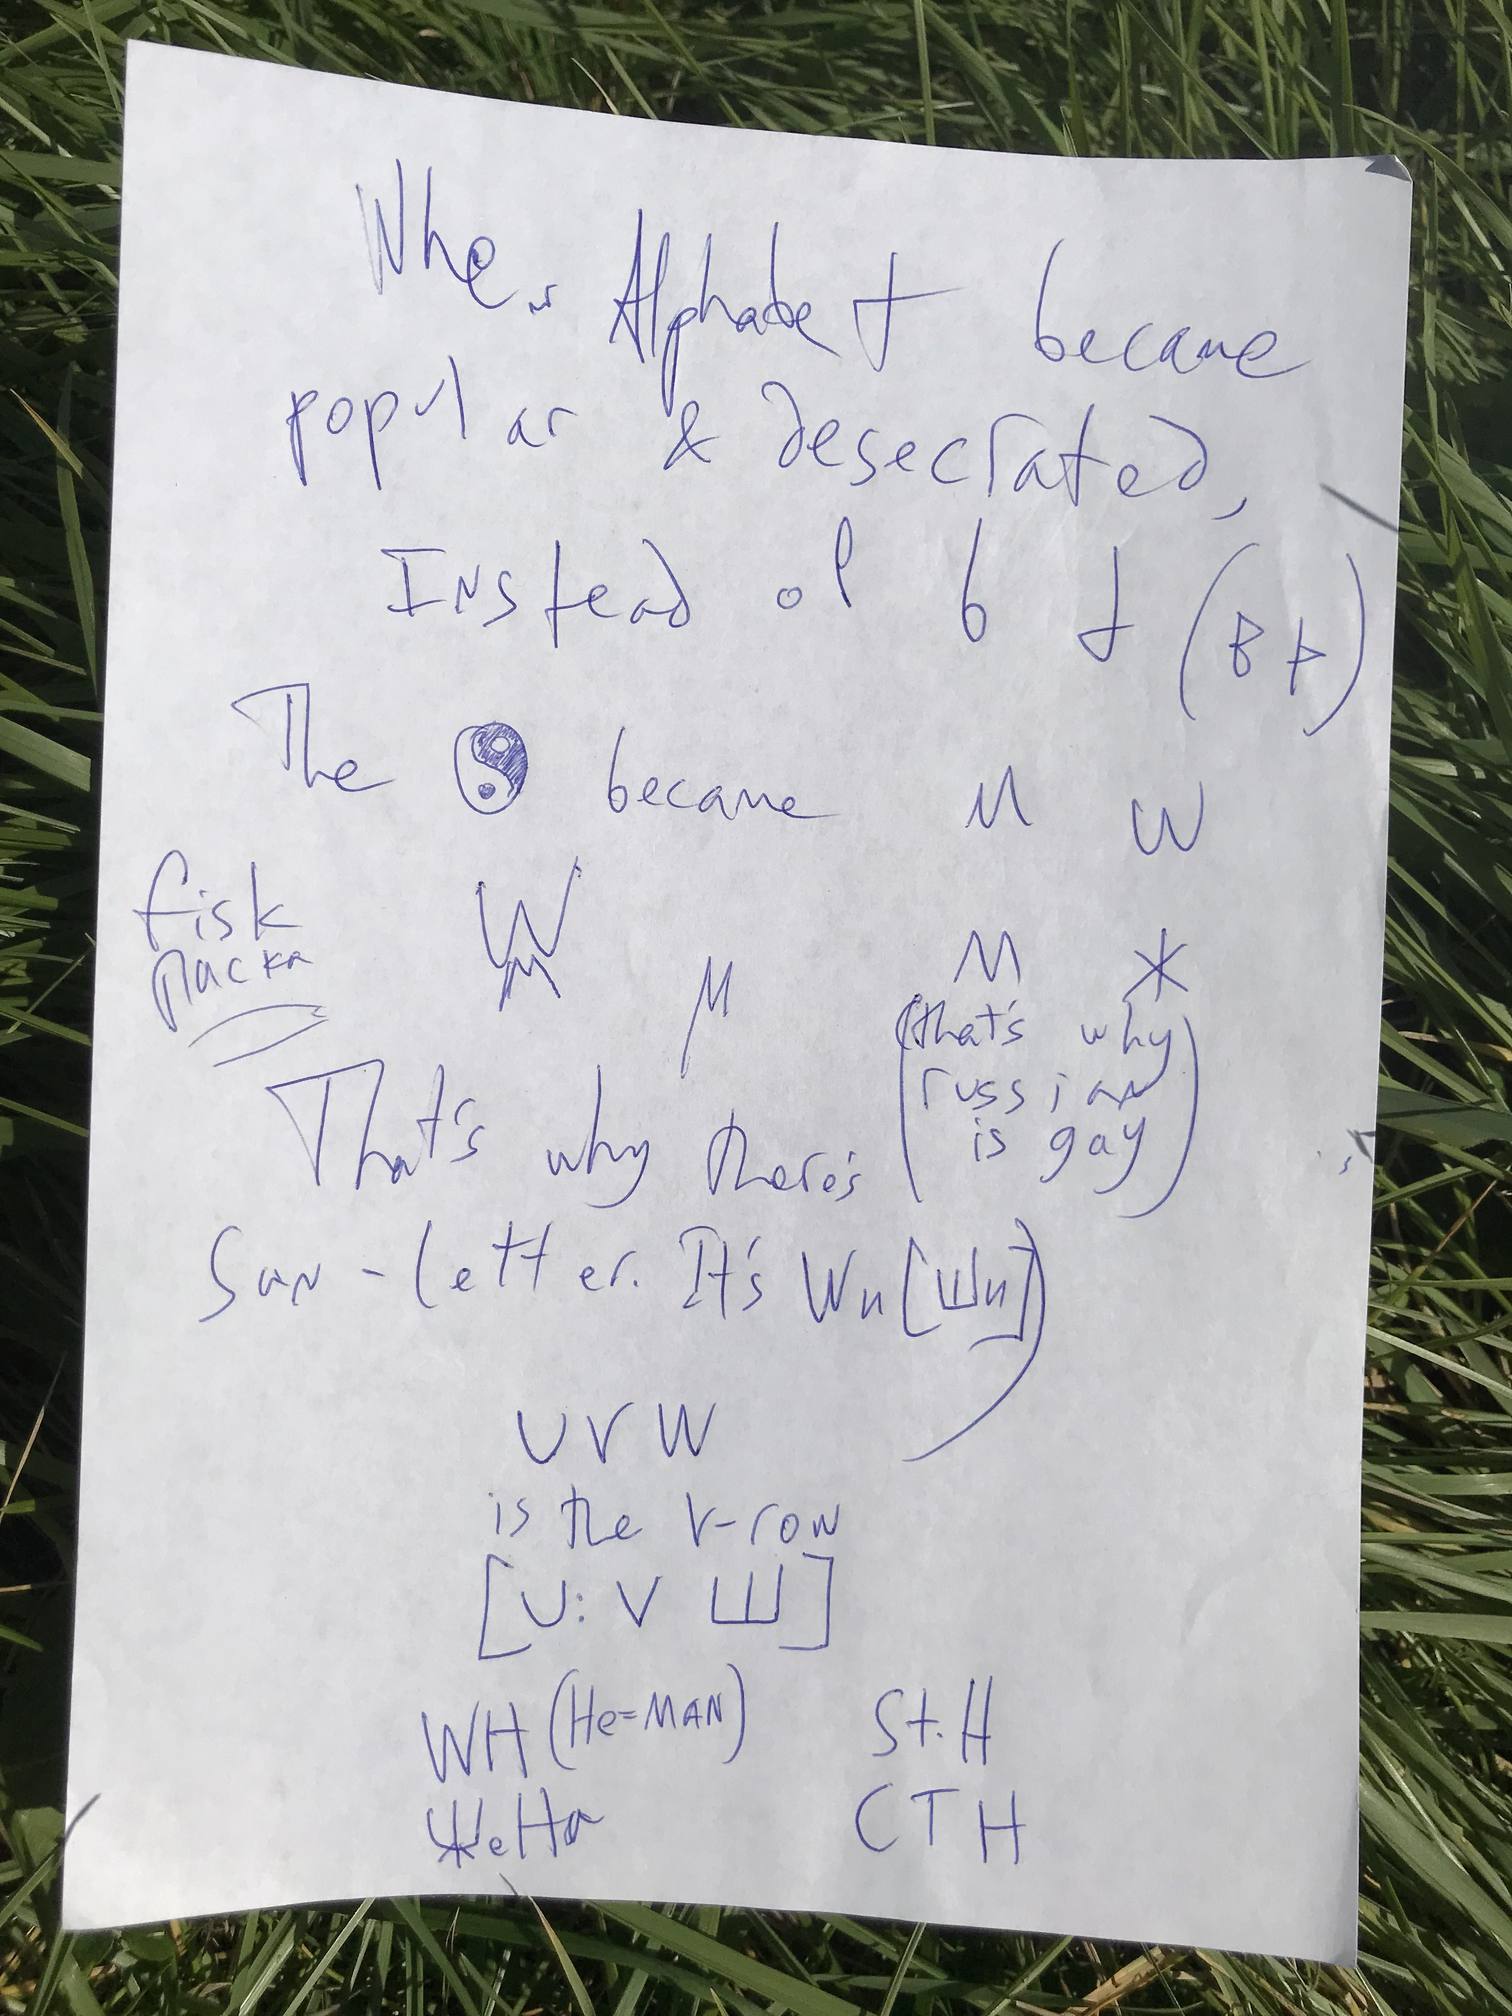 When Alphabet became
popular & desecrated,
Instead of b d (B
The ☯ became M W
fisk
W
M
μ
M Ж
паска
(that's why
russian
is gay)
That's why there's
Sun-letter. It's Wn [Шn]
U V W
is the V-row
[U: V Ш]
WH (He=MAN) St. H
ЖеНа СТН